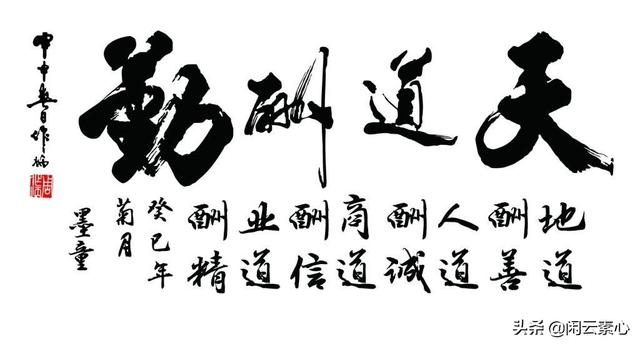 天道酬勤
地道
酬善
人道
酬诚
商道
酬信
业道
酬精
癸巳年
菊月
墨童
甲申春日作
头条 @闲云素心